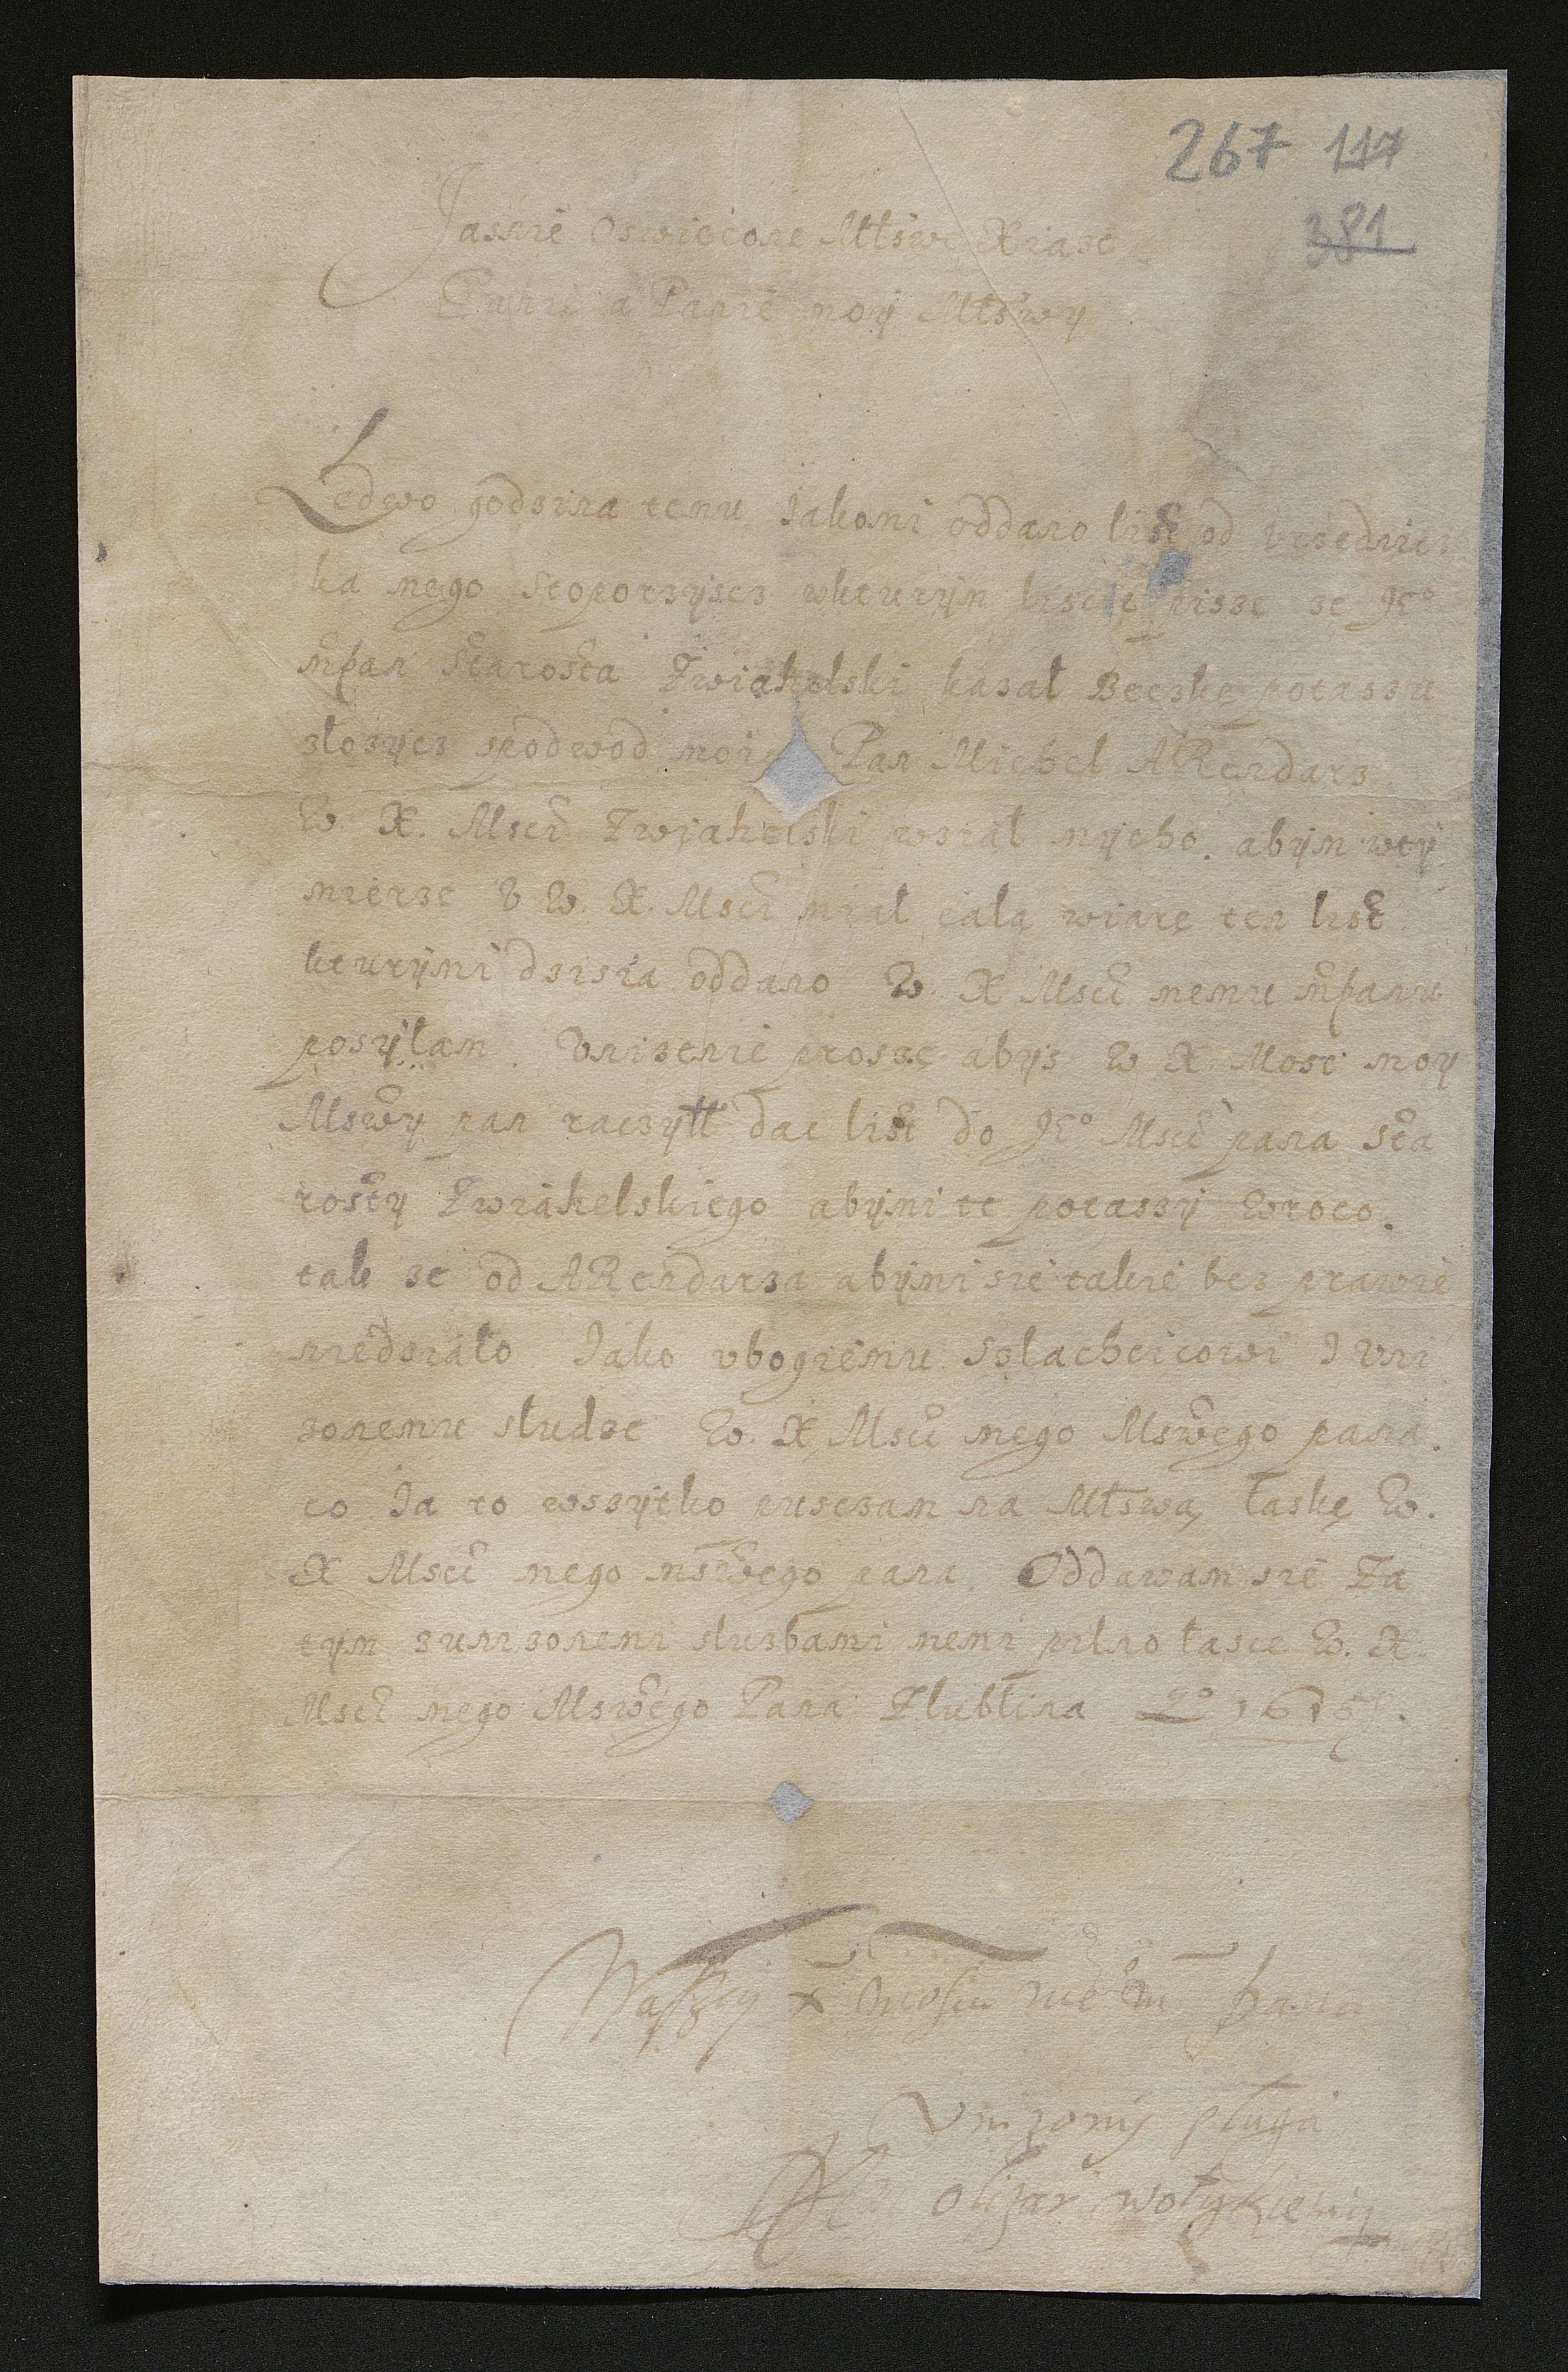 267 117
381
Jasnie Oswiecone Młsiwe Xiaze
Panie a Panie moy Młswy
Ledwo godzina temu Jakomi oddano list od Vrzednicz
ka mego Stoporzyscz wkturym liscie pisze ze Jeº
mṕan starosta Zwiahelski kazał Beczke potaszu
złozycz zpodwod moi Pan Michel ARendarz
W. X. Msci Zwiahelski wział mycho. abym wty
mierze V W. X. Msci miał całą wiarę ten list
kturymi dzisia oddano W. X Msci memu mṕanu
posyłam Vnizenie proszę abys W X. Mosc moy
Mswy pan raczyłł dac list do Jeº Msci pana sta
rosty Zwiahelskiego abymi te potaszy wroco.
tak ze od ARendarza abymi sie takie bez prawie
niedziało Jako vbogiemu Szlachcicowi I Vni
zonemu słudze W. X Msci mego Mswego pana.
co Ja to wszytko puszczam na Młswą łaskę W.
X Msci mego mswego pana. Oddawam sie Za
tym zunizonemi słuzbami memi pilno łasce W. X.
Msci mego Mswego Pana Zlublina Aº
Waszey X Mosci mº m pana
Vnizony sługa
olizar wołczkiewicz